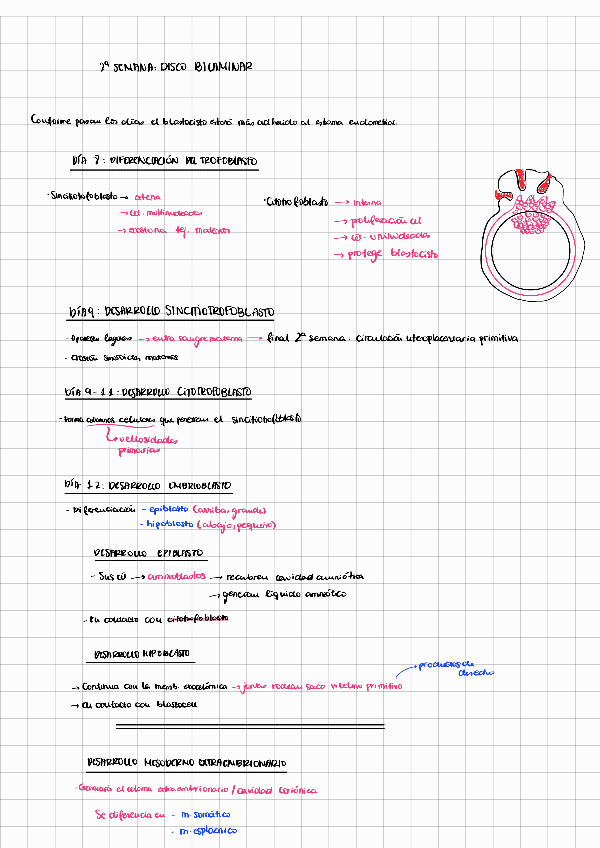 2ª SEMANA: DISCO BILAMINAR
Conforme pasan los días el blastocisto estará más adherido al estroma endometrial.
DÍA 8: DIFERENCIACIÓN DEL TROFOBLASTO
· Sincitiotrofoblasto → externa
→ cél. multinucleadas
→ erosiona tej. materno
· Citotrofoblasto → interna
→ proliferación cel
→ cél. uninucleadas
→ protege blastocisto
DÍA 9: DESARROLLO SINCITIOTROFOBLASTO
· Aparecen lagunas → entra sangre materna → final 2ª semana: circulación uteroplacentaria primitiva
· erosión sinusoides maternos
DÍA 9-11: DESARROLLO CITOTROFOBLASTO
- Forma columnas celulares que penetran el sincitiotrofoblasto
vellosidades
primarias
DÍA 12: DESARROLLO EMBRIOBLASTO
- Diferenciación - epiblasto (arriba, grande)
- hipoblasto (abajo, pequeño)
DESARROLLO EPIBLASTO
- Sus cél → amnioblastos → recubren cavidad amniótica
→ generan líquido amniótico
- En contacto con citotrofoblasto
DESARROLLO HIPOBLASTO
→ Continua con la memb. exocelómica → juntas rodean saco vitelino primitivo
→ productos de
desecho
→ en contacto con blastocele
DESARROLLO MESODERMO EXTRAEMBRIONARIO
- Generará el celoma extraembrionario / cavidad coriónica
Se diferencia en - m. somático
- m. esplacnico